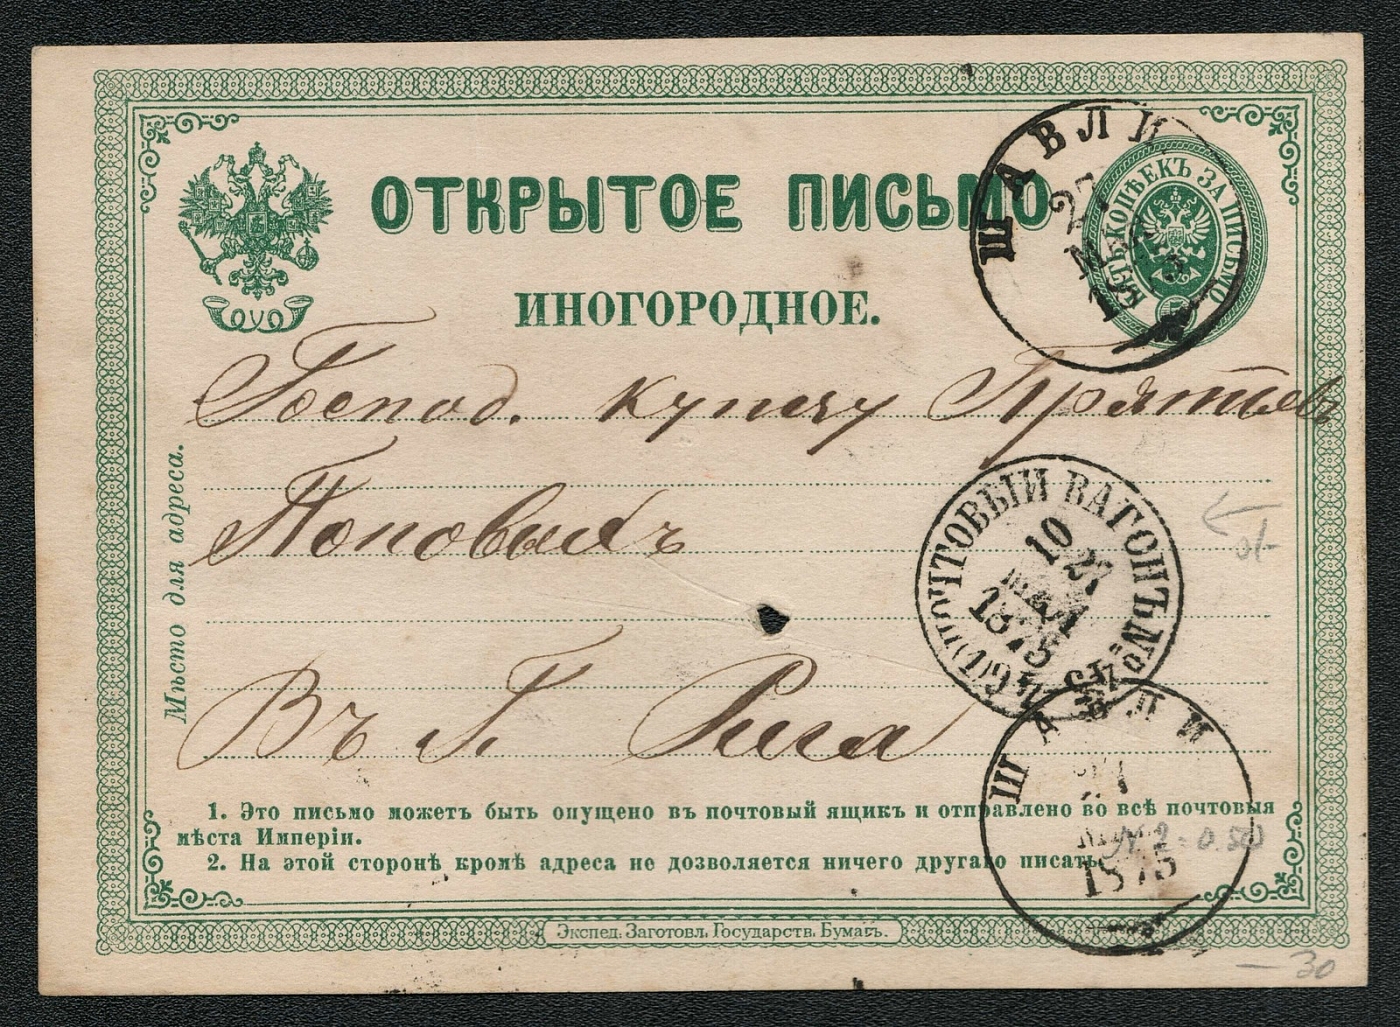 ОТКРЫТОЕ ПИСЬМО
ИНОГОРОДНОЕ.
ПЯТЬ КОПѢЕКЪ ЗА ПИСЬМО
5
ШАВЛИ
27
МАЯ
1875
Господ. купцу
Поповыхъ
Въ Г. Рига
Мѣсто для адреса.
ПОЧТОВЫЙ ВАГОНЪ №
10
27
МАЯ
1875
ШАВЛИ
МАЯ
1875
1. Это письмо можетъ быть опущено въ почтовый ящикъ и отправлено во всѣ почтовыя
мѣста Имперіи.
2. На этой сторонѣ кромѣ адреса не дозволяется ничего другаго писать.
Экспед. Заготовл. Государств. Бумагъ.
— 30